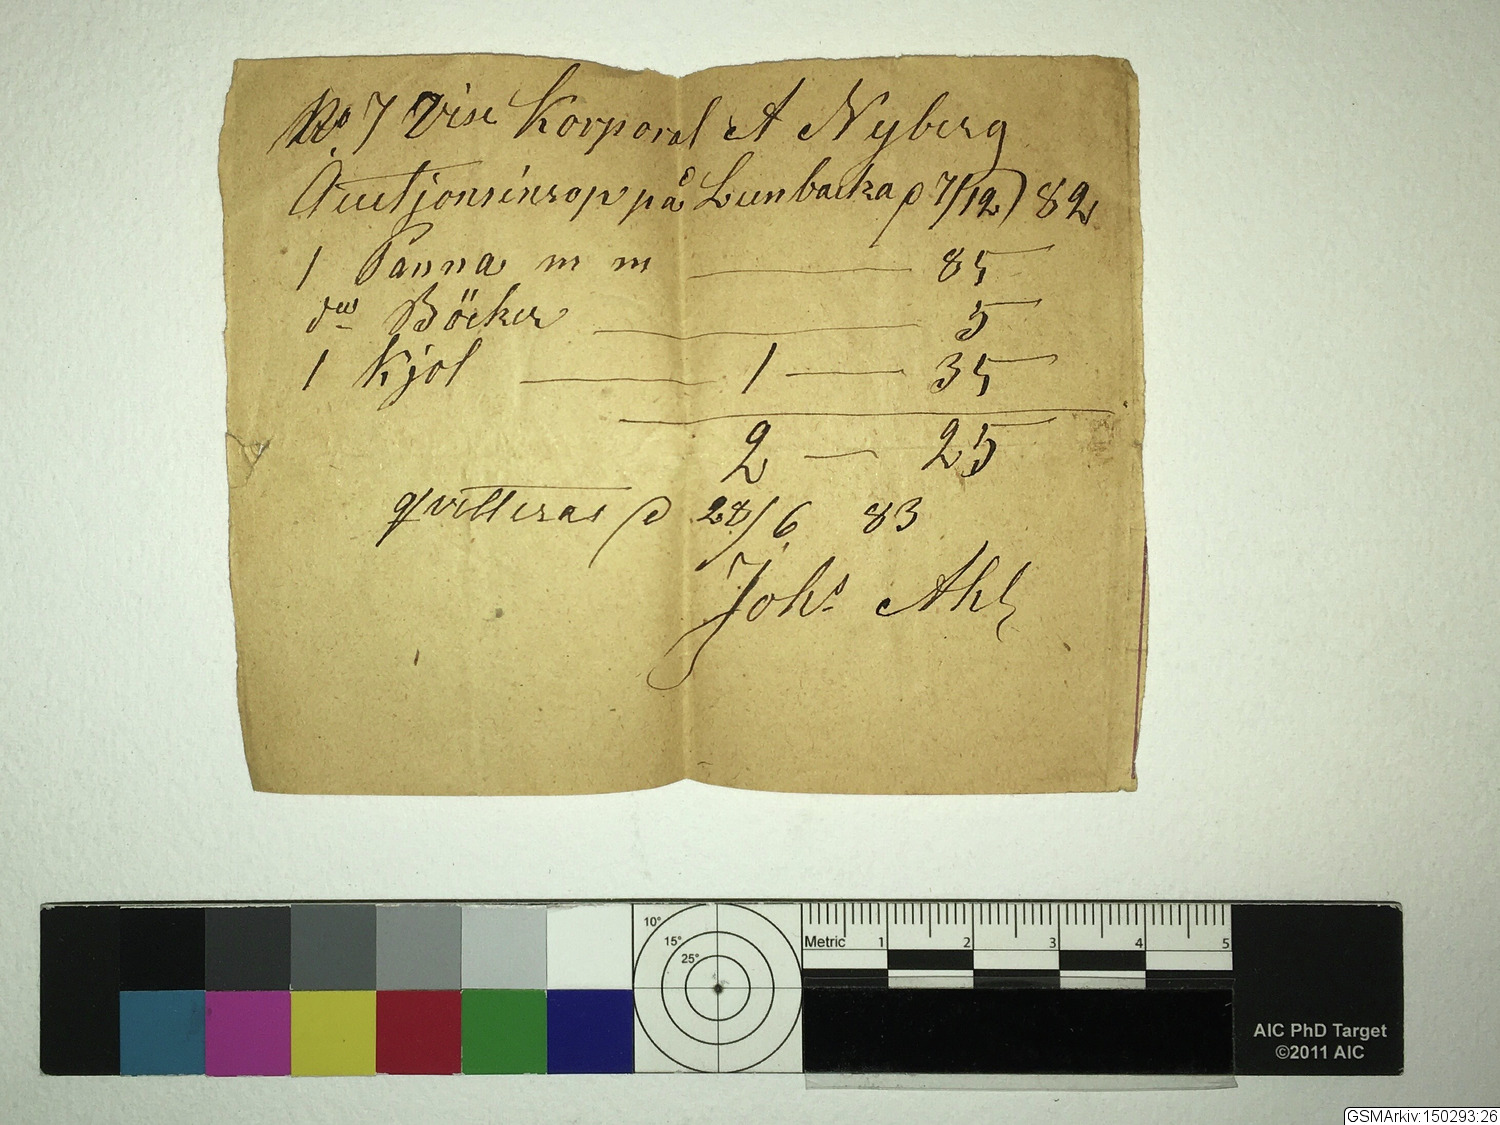 No 7 Vise Korporal A Nyberg
Auctjonsinrop på Lunbacka d 7/12) 82
1 Panna m m 85
Böcker 5
1 Kjol 1 — 35
2 — 25
qvitteras d 28/6 83
Johs Ahl
10°
15°
25°
Metric 1 2 3 4 5
AIC PhD Target
©2011 AIC
GSMArkiv:150293:26